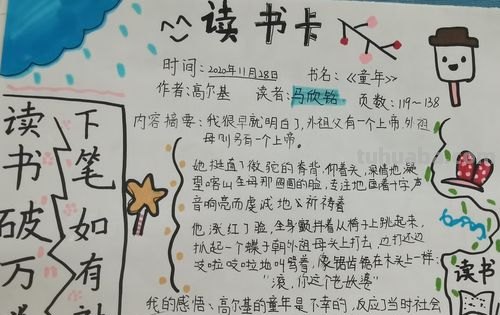 读书卡
时间：2020年11月28日
书名：《童年》
作者：高尔基
读者：马欣铭
页数：119～138
内容摘要：我很早就明白了，外祖父有一个上帝，外祖
母则另有一个上帝。
她挺直了微驼的脊背，仰着头，亲情地凝
望喀山圣母那圆圆的脸，专注地画着十字声
音响亮而虔诚地祈祷着
他涨红了脸，全身颤抖着从椅子上跳起来，
抓起一个碟子朝外祖母头上打去，边打还边
吱啦吱啦地叫骂着，像锯齿锯在木头上一样，
"滚，你这个老妖婆"
我的感悟：高尔基的童年是不幸的，反应了当时社会
读书破万
下笔如有
读书